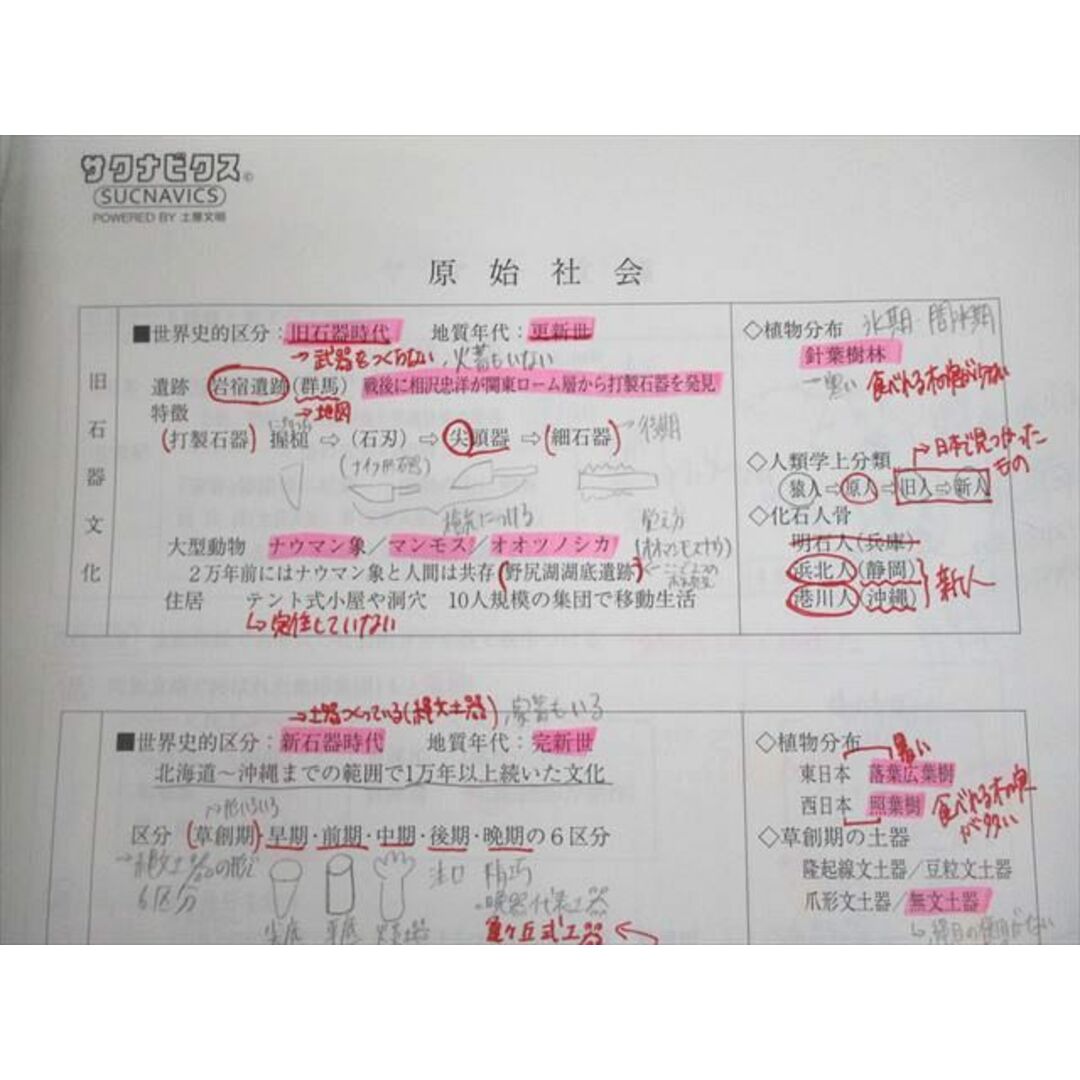 サクナビクス©
SUCNAVICS
POWERED BY 土屋文明
原始社会
旧石器文化
■世界史的区分：旧石器時代　地質年代：更新世
→武器をつくらない、火葬もいない
遺跡　岩宿遺跡(群馬)　戦後に相沢忠洋が関東ローム層から打製石器を発見
→地図
特徴
(打製石器)　握槌⇨(石刃)⇨尖頭器⇨(細石器)→後期
(ナイフ形石器)
覚え方
大型動物　ナウマン象／マンモス／オオツノシカ
2万年前にはナウマン象と人間は共存(野尻湖湖底遺跡)
住居　テント式小屋や洞穴　10人規模の集団で移動生活
↳定住していない
◇植物分布　氷期・間氷期
針葉樹林
→寒い
→日本で見つかったもの
◇人類学上分類
猿人⇨原人⇨旧人⇨新人
◇化石人骨
明石人(兵庫)
浜北人(静岡)
港川人(沖縄)
新人
→土器つくっている(縄文土器)、家畜もいる
■世界史的区分：新石器時代　地質年代：完新世
北海道～沖縄までの範囲で1万年以上続いた文化
区分(草創期)早期・前期・中期・後期・晩期の6区分
→縄文土器の形で
6区分
注口　精巧
尖底　平底　火炎土器
亀ヶ丘式土器←
◇植物分布
→暑い
東日本　落葉広葉樹
西日本　照葉樹
食べれる木の実が多い
◇草創期の土器
隆起線文土器／豆粒文土器
爪形文土器／無文土器